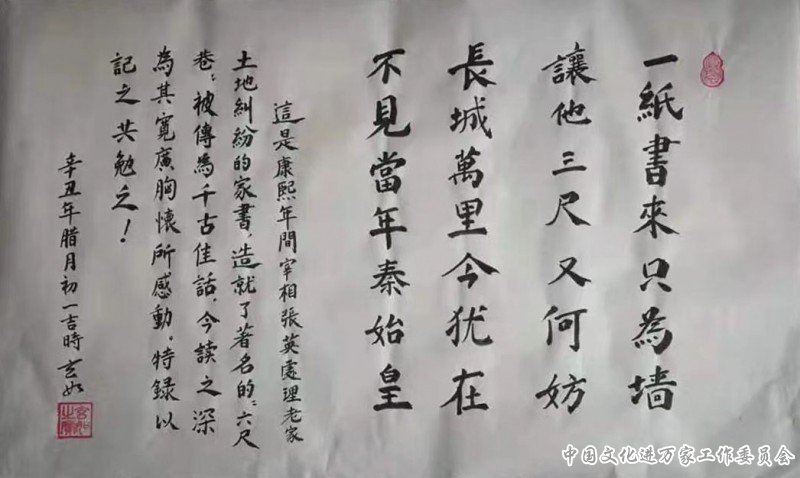 一紙書來只為墙
讓他三尺又何妨
長城萬里今犹在
不見當年秦始皇
這是康熙年間宰相張英處理老家
土地糾紛的家書，造就了著名的“六尺
巷”，被傳為千古佳話，今讀之深
為其寬廣胸懷所感動，特錄以
記之共勉之！
辛丑年腊月初一吉時 玄如
中国文化进万家工作委员会